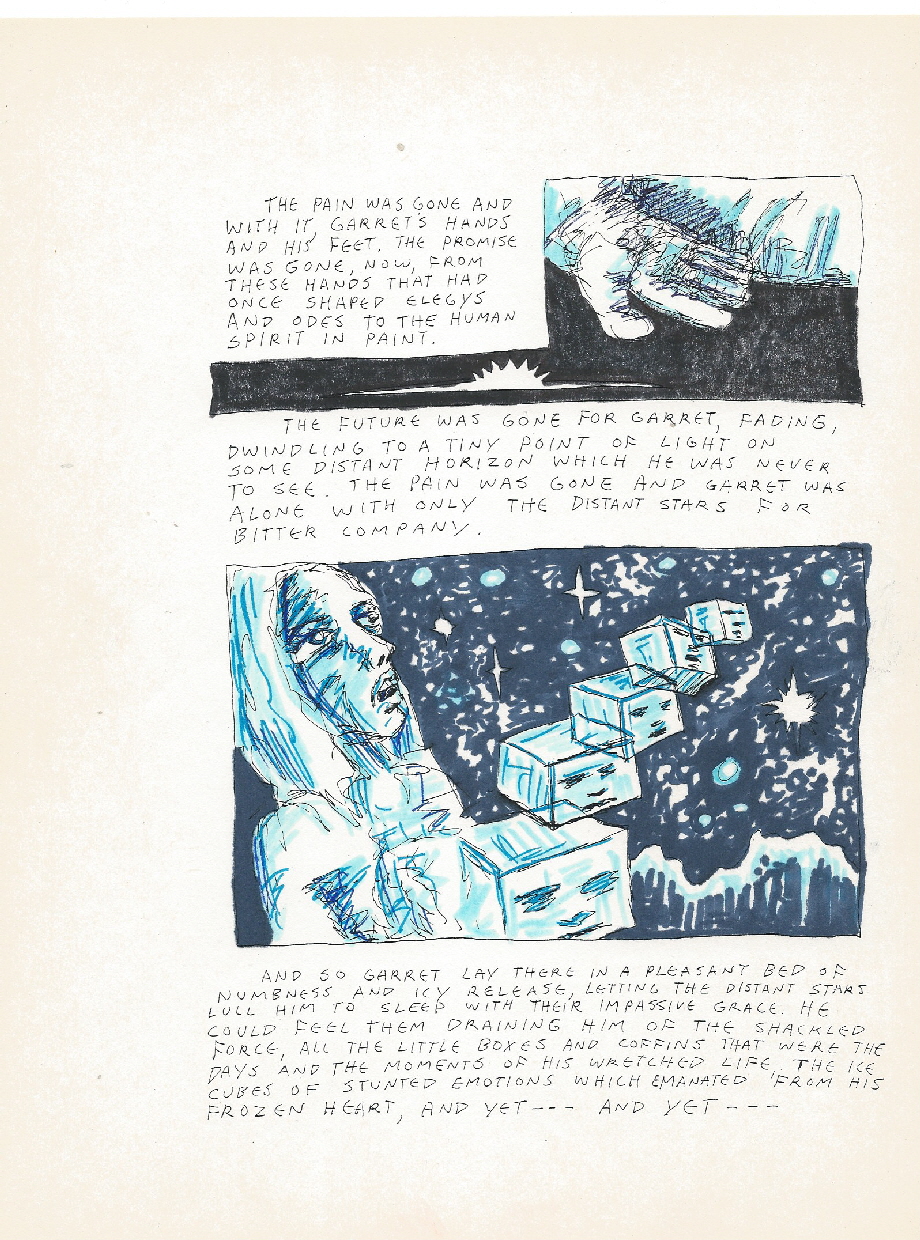 THE PAIN WAS GONE AND
WITH IT, GARRET'S HANDS
AND HIS FEET. THE PROMISE
WAS GONE, NOW, FROM
THESE HANDS THAT HAD
ONCE SHAPED ELEGYS
AND ODES TO THE HUMAN
SPIRIT IN PAINT.
THE FUTURE WAS GONE FOR GARRET, FADING,
DWINDLING TO A TINY POINT OF LIGHT ON
SOME DISTANT HORIZON WHICH HE WAS NEVER
TO SEE. THE PAIN WAS GONE AND GARRET WAS
ALONE WITH ONLY THE DISTANT STARS FOR
BITTER COMPANY.
AND SO GARRET LAY THERE IN A PLEASANT BED OF
NUMBNESS AND ICY RELEASE, LETTING THE DISTANT STARS
LULL HIM TO SLEEP WITH THEIR IMPASSIVE GRACE. HE
COULD FEEL THEM DRAINING HIM OF THE SHACKLED
FORCE, ALL THE LITTLE BOXES AND COFFINS THAT WERE THE
DAYS AND THE MOMENTS OF HIS WRETCHED LIFE, THE ICE
CUBES OF STUNTED EMOTIONS WHICH EMANATED FROM HIS
FROZEN HEART, AND YET--- AND YET ----